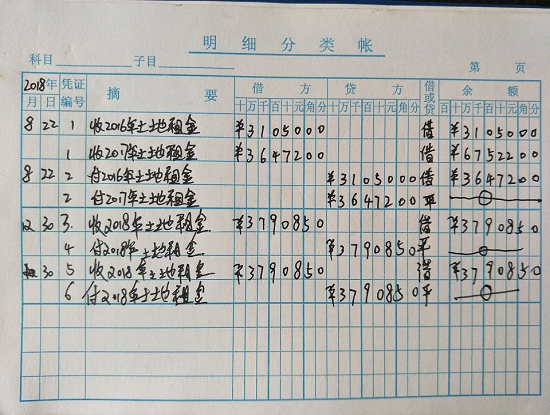 明细分类帐
科目 子目 第 页
2018年 凭证编号 摘要 借方 贷方 借或贷 余额
月 日 十万千百十元角分 十万千百十元角分 百十万千百十元角分
8 22 1 收2016年土地租金 ¥3105000 借 ¥3105000
1 收2017年土地租金 ¥3647200 借 ¥6752200
8 22 2 付2016年土地租金 ¥3105000 借 ¥3647200
2 付2017年土地租金 ¥3647200 平 0
12 30 3. 收2018年土地租金 ¥3790850 借 ¥3790850
4 付2018年土地租金 ¥3790850 平 0
30 5 收2018年土地租金 ¥3790850 借 ¥3790850
6 付2018年土地租金 ¥3790850 平 0